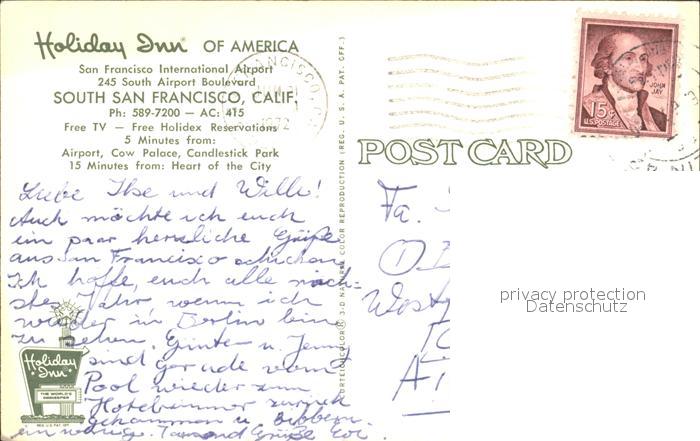 Holiday Inn® OF AMERICA
San Francisco International Airport
245 South Airport Boulevard
SOUTH SAN FRANCISCO, CALIF.
Ph: 589-7200 — AC: 415
Free TV — Free Holidex Reservations
5 Minutes from:
Airport, Cow Palace, Candlestick Park
15 Minutes from: Heart of the City
FRANCISCO
1972
JOHN
JAY
15¢
U.S. POSTAGE
POST CARD
3-D NATURAL COLOR REPRODUCTION (REG. U. S. A. PAT. OFF.)
Liebe Ilse und Willi!
Auch möchte ich euch
ein paar herzliche Grüße
aus San Francisco schicken
Ich hoffe, euch alle näch-
stes Jahr wenn ich
wieder in Berlin bin
zu sehen. Günter u. Jenny
sind gerade vom
Pool wieder zum
Hotelzimmer zurück
gekommen u.
ein wenig. Tausend Grüße
Holiday
Inn®
THE WORLD'S
INNKEEPER
REG. U.S. PAT. OFF.
Fa.
privacy protection
Datenschutz